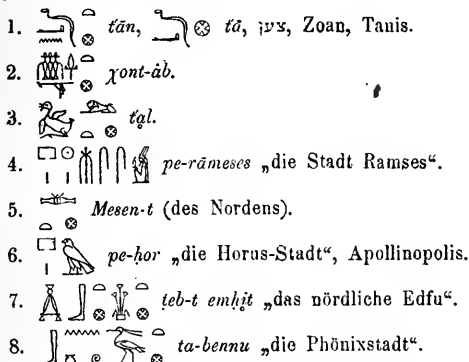 1. ťān, ťā, צען, Zoan, Tanis.
2. χont-àb.
3. ťal.
4. pe-rāmeses „die Stadt Ramses“.
5. Mesen-t (des Nordens).
6. pe-ḥor „die Horus-Stadt“, Apollinopolis.
7. ṭeb-t emḥit „das nördliche Edfu“.
8. ta-bennu „die Phönixstadt“.